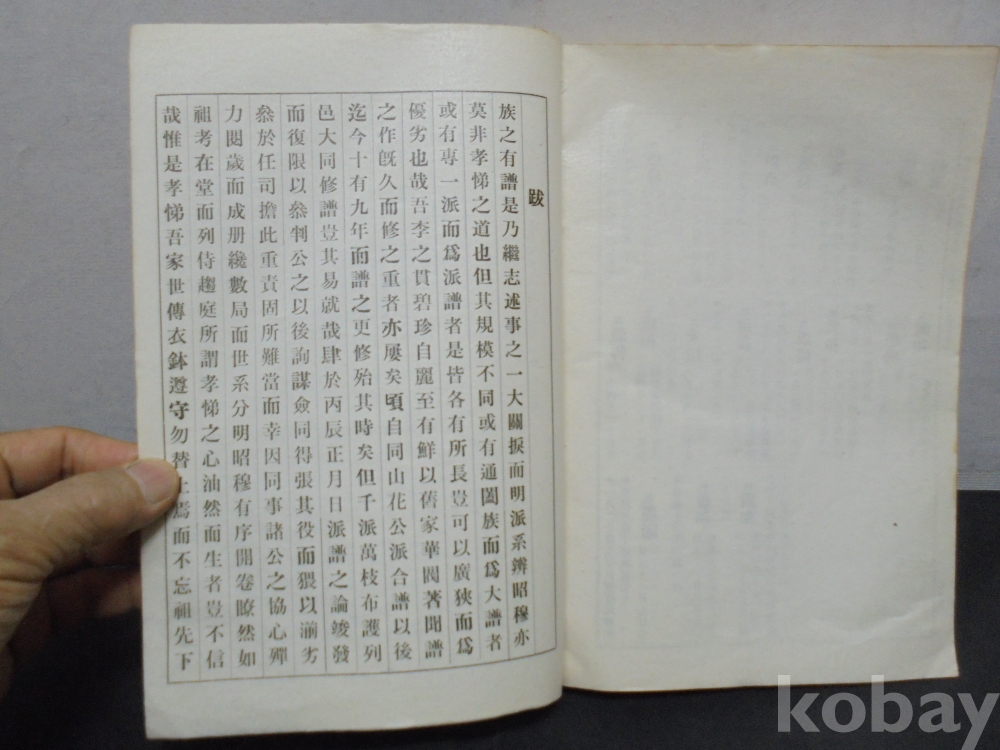 跋
族之有譜是乃繼志述事之一大關捩而明派系辨昭穆亦
莫非孝悌之道也但其規模不同或有通闔族而爲大譜者
或有專一派而爲派譜者是皆各有所長豈可以廣狹而爲
優劣也哉吾李之貫碧珍自麗至有鮮以舊家華閥著聞譜
之作旣久而修之重者亦屢矣頃自同山花公派合譜以後
迄今十有九年而譜之更修殆其時矣但千派萬枝布護列
邑大同修譜豈其易就哉肆於丙辰正月日派譜之論竣發
而復限以叅判公之以後詢謀僉同得張其役而猥以湔劣
叅於任司擔此重責固所難當而幸因同事諸公之協心殫
力閱歲而成册纔數局而世系分明昭穆有序開卷瞭然如
祖考在堂而列侍趨庭所謂孝悌之心油然而生者豈不信
哉惟是孝悌吾家世傳衣鉢遵守勿替上焉而不忘祖先下
kobay